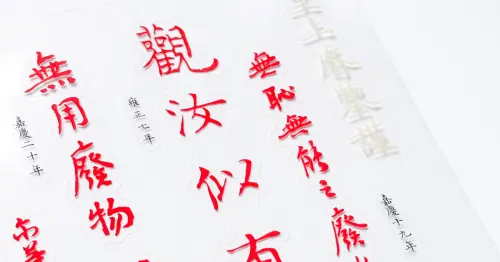 上
鑒謹
嘉慶十九年
無恥無能之廢
觀汝似有
雍正七年
無用廢物
嘉慶二十年